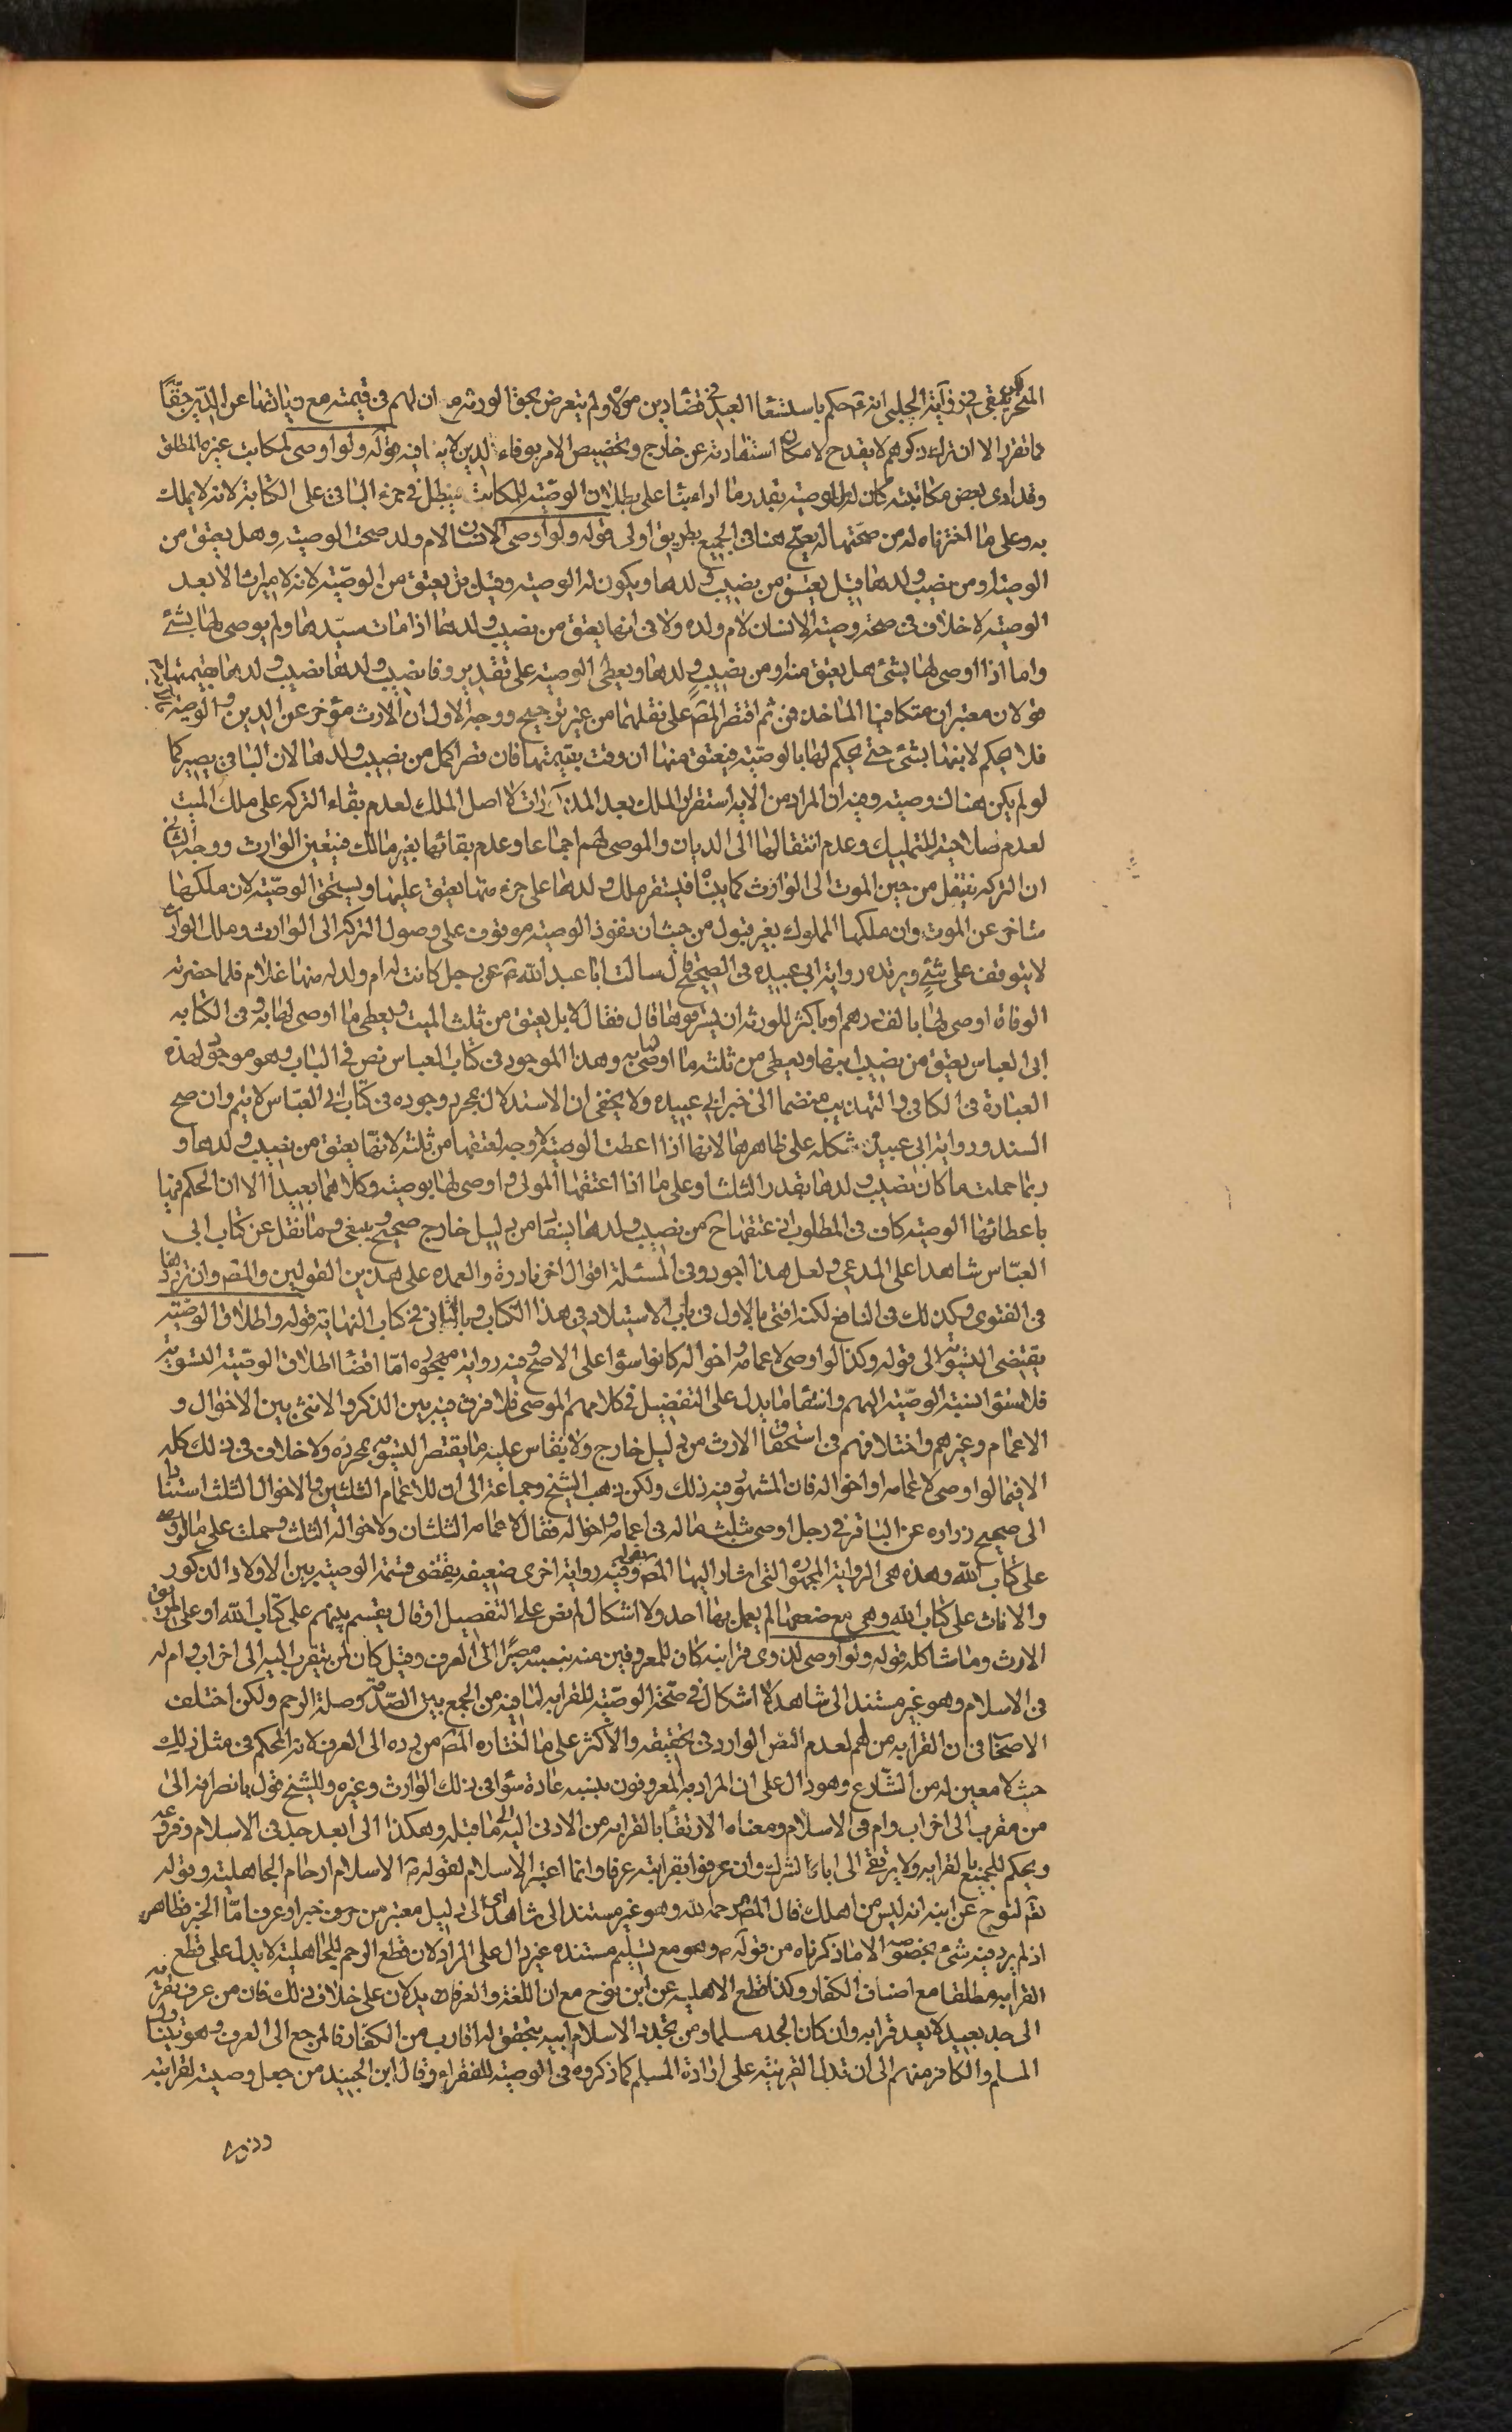 التحرير بقي في رواية الحلبي انه ع حكم باستسعاء العبد في قضاء دين مولاه ولم يتعرض لحق الورثة مع ان لهم في قيمته مع زيادتها عن الدين حقا
مما تقرر الا ان ترك ذكرهم لا يقدح لامكان استفادته من خارج وتخصيص الامر بوفاء الدين لا ينافيه قوله ولو اوصى لمكاتب غيره المطلق
وقد ادى بعض مكاتبته كان له من الوصية بقدر ما اداه بناء على بطلان الوصية للمكاتب فيبطل في جزء الباقي على الكتابة لانه لا يملك
به وعلى ما اخترناه له من صحتها له يصح هنا في الجميع بطريق اولى قوله ولو اوصى الانسان لام ولده صحت الوصية وهل يعتق من
الوصية او من نصيب ولدها قيل يعتق من نصيب ولدها ويكون له الوصية وقيل بل يعتق من الوصية لانه لا ميراث الا بعد
الوصية لا خلاف في صحة وصية الانسان لام ولده ولا في انها يعتق من نصيب ولدها اذا مات سيدها ولم يوص لها بشئ
واما اذا اوصى لها بشئ هل يعتق منه او من نصيب ولدها ويعطى الوصية على تقدير وفا نصيب ولدها نصيب ولدها بقيمتها فيه
قولان معتبران متكافيا الماخذ فمن ثم اقتصر المص على نقلهما من غير ترجيح ووجه الاول ان الارث مؤخر عن الدين والوصية
فلا يحكم لابنها بشئ حتى يحكم لها بالوصية فيعتق منها ان وفت بقيمتها فان قصر اكمل من نصيب ولدها لان الباقي يصير كما
لو لم يكن هناك وصية وفيه ان المراد من الاية استقرار الملك بعد المذكورات لا اصل الملك لعدم بقاء التركة على ملك الميت
لعدم صلاحيته للتمليك وعدم انتقالها الى الديان والموصى لهم اجماعا وعدم بقائها بغير مالك فيتعين الوارث ووجه الثاني
ان التركة تنتقل من حين الموت الى الوارث كما بيناه فيستقر ملك ولدها على جزء منها يعتق عليها ويستحق الوصية لان ملكها
متاخر عن الموت وان ملكها المملوك بغير قبول من حيث ان نفوذ الوصية موقوف على وصول التركة الى الوارث وملك الوارث
لا يتوقف على شئ ويرشده رواية ابي عبيدة في الصحيح قال سالت ابا عبد الله ع عن رجل كانت له ام ولد له منها غلام فلما حضرته
الوفاة اوصى لها بالف درهم او باكثر للورثة ان يسترقوها قال فقال لا بل يعتق من ثلث الميت ويعطى ما اوصى لها به وفي الكتابه
ابي العباس يعتق من نصيب ابنها ويعطى من ثلثه ما اوصى لها به وهذا الموجود في كتاب العباس نص في الباب وهو موجود لهذه
العبارة في الكافي والتهذيب منضما الى خبر ابي عبيده ولا يخفى ان الاستدلال بمجرد وجوده في كتاب ابي العباس لا يتم وان صح
السند ورواية ابي عبيدة مشكله على ظاهرها لانها اذا اعطت الوصية لا وجه لعتقها من ثلثه لانها يعتق من نصيب ولدها و
ربما حملت ما كان نصيب ولدها بقدر الثلث او على ما اذا اعتقها المولى واوصى لها بوصية وكلاهما بعيد الا ان الحكم فيها
باعطائها الوصية كاف في المطلوب اذ عتقها ح من نصيب ولدها يستفاد من دليل خارج صحيح ويبقى ما نقل عن كتاب ابي
العباس شاهدا على المدعي ولعل هذا اجود وفي المسئلة اقوال اخر نادرة والعمدة على هذين القولين والمص وان تردد هنا
في الفتوى وكذلك في النافع لكنه افتى بالاول في باب الاستيلاد في هذا الكتاب وبالثاني في كتاب النهاية قوله واطلاق الوصية
يقتضي التسوية الى قوله وكذا لو اوصى لاعمامه واخواله كانوا سواء على الاصح وفيه رواية مهجورة اما اقتضاء اطلاق الوصية التسوية
فلاستواء نسبة الوصية اليهم وانتفاء ما يدل على التفضيل في كلامهم الموصي فلا فرق فيه بين الذكر والانثى بين الاخوال و
الاعمام وغيرهم واختلافهم في استحقاق الارث من دليل خارج ولا يقاس عليه ما يقتضر التسوية بمجرده ولا خلاف في ذلك كله
الا فيما لو اوصى لاعمامه او اخواله فان المشهور فيه ذلك ولكن ذهب الشيخ وجماعة الى ان للاعمام الثلثين والاخوال الثلث استنادا
الى صحيح زراره عن الباقر في رجل اوصى بثلث ماله في اعمامه واخواله فقال لاعمامه الثلثان ولاخواله الثلث وحملت على ما لو اوصى
على كتاب الله وهذه هي الرواية المهجورة التي اشار اليها المص بقوله وفيه رواية اخرى ضعيفة يقتضي قسمة الوصية بين الاولاد الذكور
والاناث على كتاب الله وهي مع ضعفها لم يعمل بها احد ولا اشكال لو نص على التفصيل او قال يقسم بينهم على كتاب الله او على طريق
الارث وما شاكله قوله ولو اوصى لذوي قرابته كان للمعروفين منه بنسبه مصيرا الى العرف وقيل كان لمن يتقرب اليه الى اخر اب وام له
في الاسلام وهو غير مستند الى شاهد لا اشكال في صحة الوصية للقرابة لما فيه من الجمع بين الصدقة وصلة الرحم ولكن اختلف
الاصحاب في ان القرابه من هم لعدم النص الوارد في تحقيقه والاكثر على ما اختاره المص من رده الى العرف لانه المحكم في مثل ذلك
حيث لا معين له من الشارع وهو دال على ان المراد به المعروفون بنسبه عادة سواء في ذلك الوارث وغيره وللشيخ قول بانصرافه الى
من تقرب الى اخر اب وام في الاسلام ومعناه الارتقاء بالقرابة من الادنى اليه الى ما قبله وهكذا الى ابعد جد في الاسلام وفروعه
ويحكم للجميع بالقرابة ولا يرتقي الى اباء الشرك وان عرفوا بقرابته عرفا وانما اعتبر الاسلام لقوله ص الاسلام ارحام الجاهلية وقوله
تعالى لنوح عن ابنه انه ليس من اهلك قال المص رحمه الله وهو غير مستند الى شاهد اي الى دليل معتبر من حرف خبر او عرف اما الخبر فظاهر
اذ لم يرد فيه شئ بخصوصه الا ما ذكرناه من قوله ص وهو مع تسليم مستنده غير دال على المراد لان قطع الرحم للجاهلية لا يدل على قطع
القرابة مطلقا مع اصناف الكفار وكذا قطع الاهلية عن ابن نوح مع ان اللغة والعرف يدلان على خلاف ذلك فان من عرف بقرابته
الى جد بعيد لا يعد قرابه وان كان الجد مسلما ومن تجدد الاسلام ابيه يتحقق له اقارب من الكفار فالمرجع الى العرف وهو يتناول
المسلم والكافر منهم الى ان تدل القرينة على ارادة المسلم كما ذكروه في الوصية للفقراء وقال ابن الجنيد من جعل وصيته لقرابته